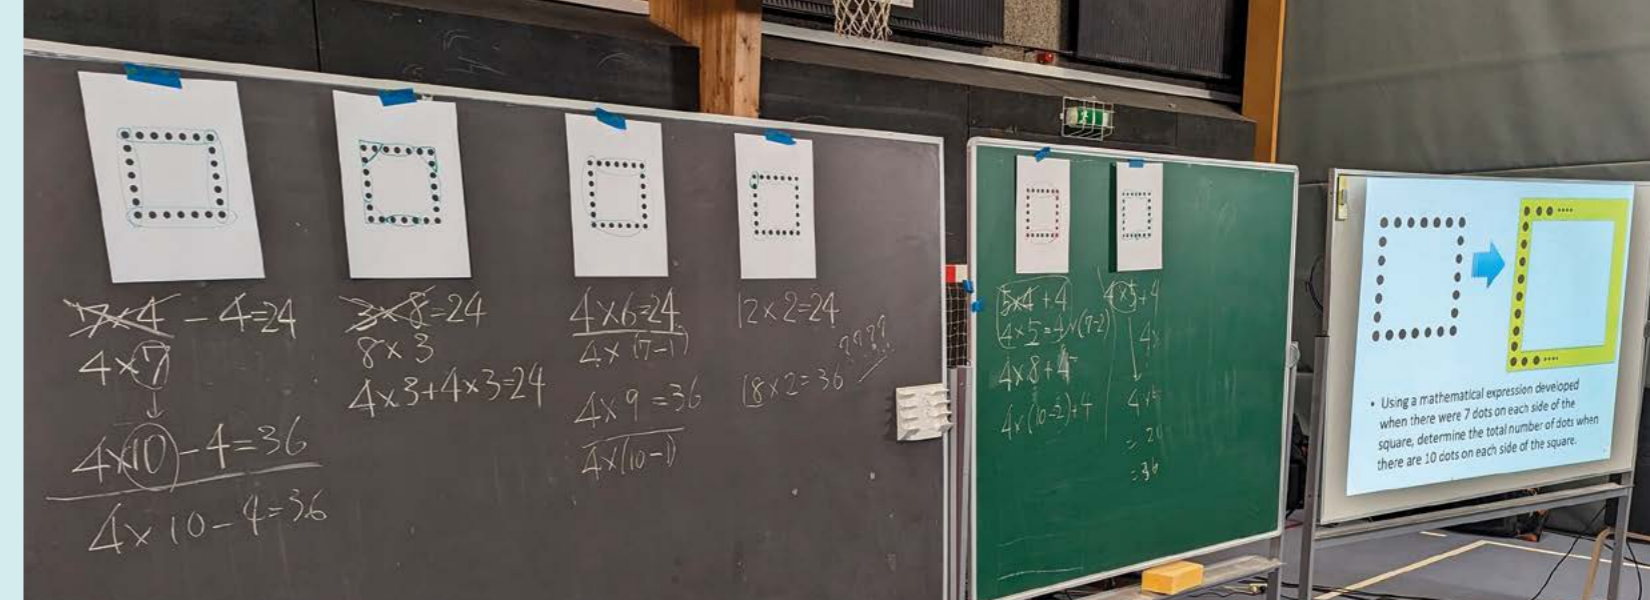 7×4 - 4=24
4×7
4×10-4=36
4×10-4=36
3×8=24
8×3
4×3+4×3=24
4×6=24
4×(7-1)
4×9=36
4×(10-1)
12×2=24
????
18×2=36
5×4+4
4×5=4×(7-2)
4×8+4
4×(10-2)+4
4×5+4
4×
=36
• Using a mathematical expression developed
when there were 7 dots on each side of the
square, determine the total number of dots when
there are 10 dots on each side of the square.